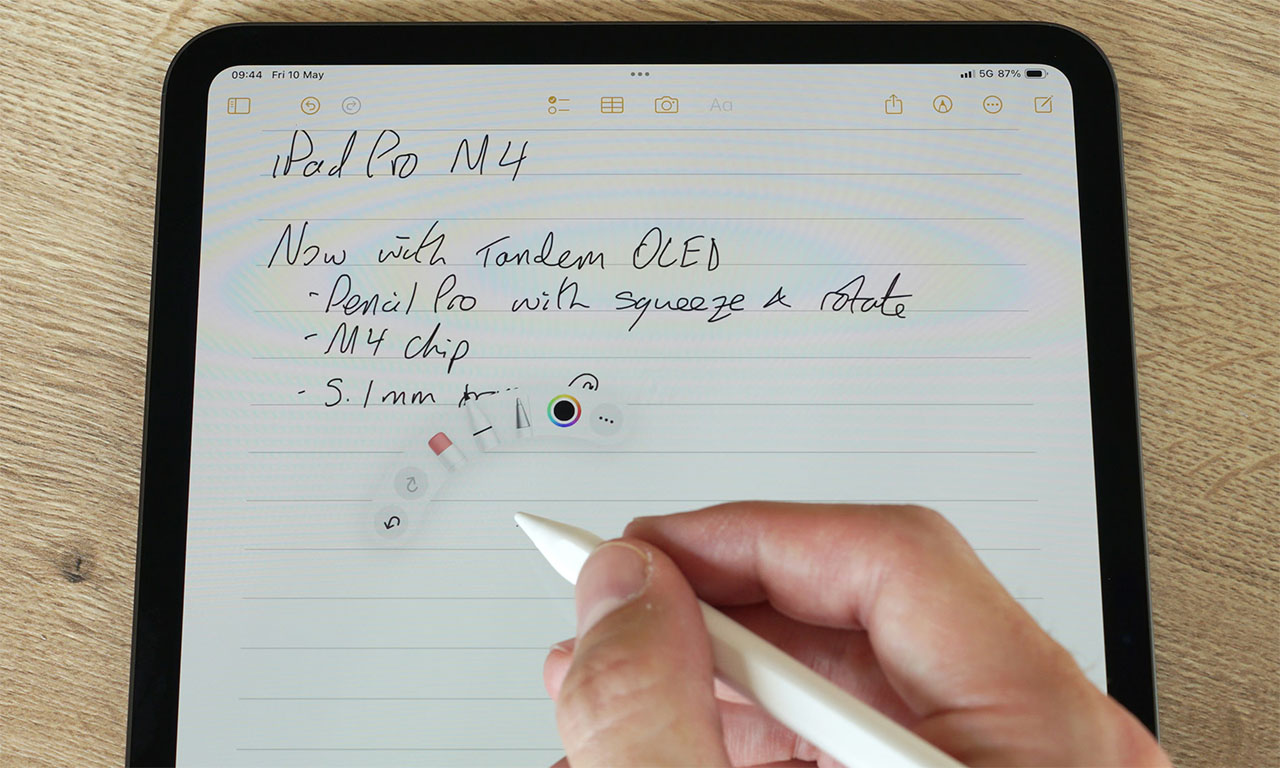 09:44 Fri 10 May
5G 87%
Aa
iPad Pro M4
Now with Tandem OLED
- Pencil Pro with squeeze & rotate
- M4 chip
- 5.1mm